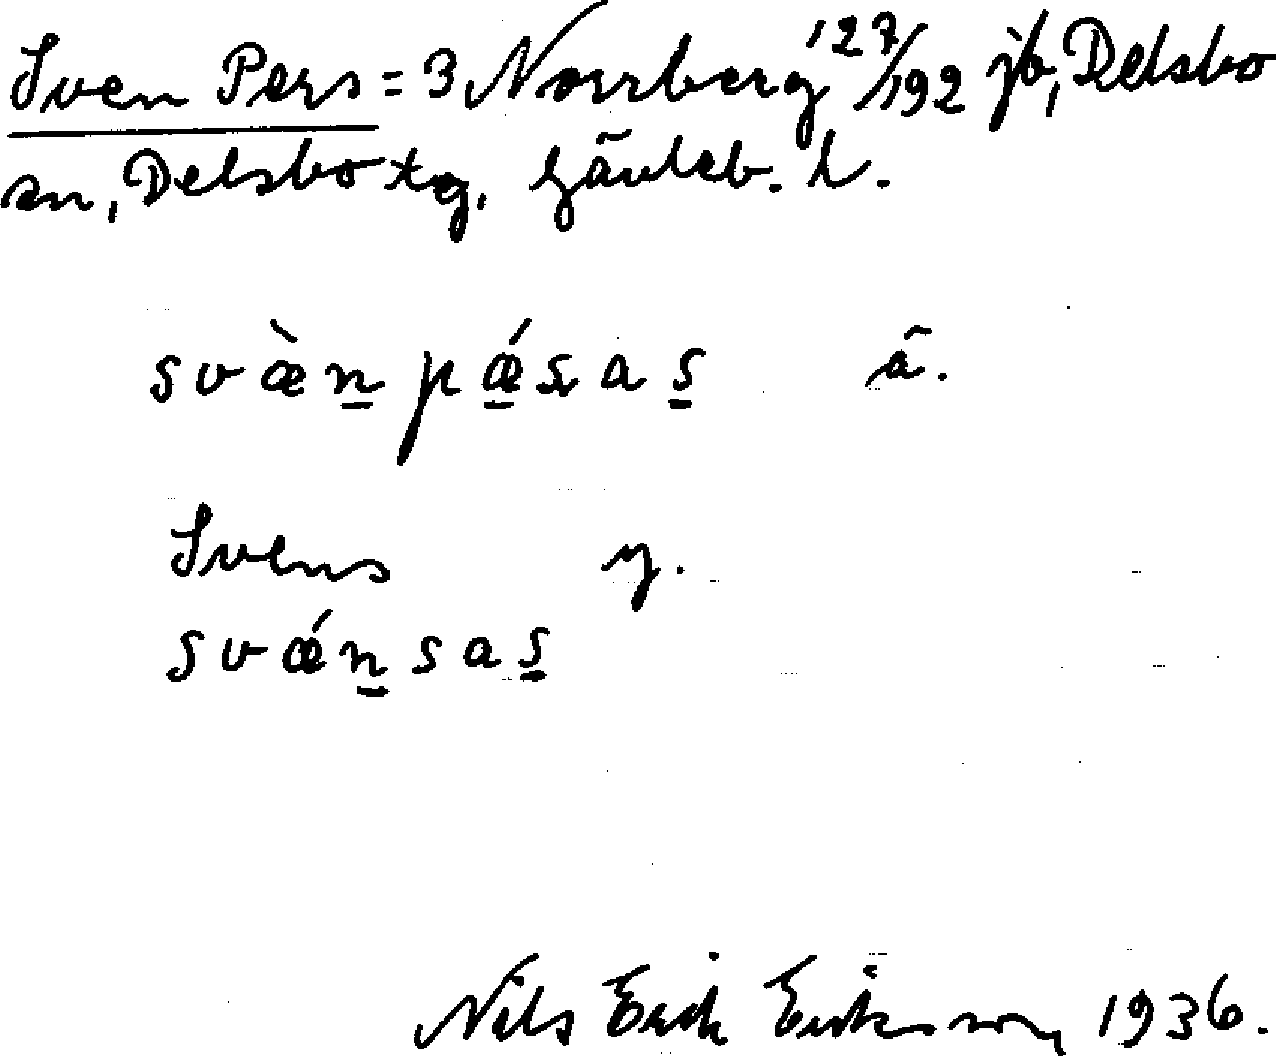 Sven Pers = 3 Norrberg 127/192 jb, Delsbo
sn, Delsbo tg, Gävleb. l.
svæ̀n̲ pǽ̲sas̲ ä.
Svens y.
svǽn̲sas̲
Nils Erik Eriksson, 1936.